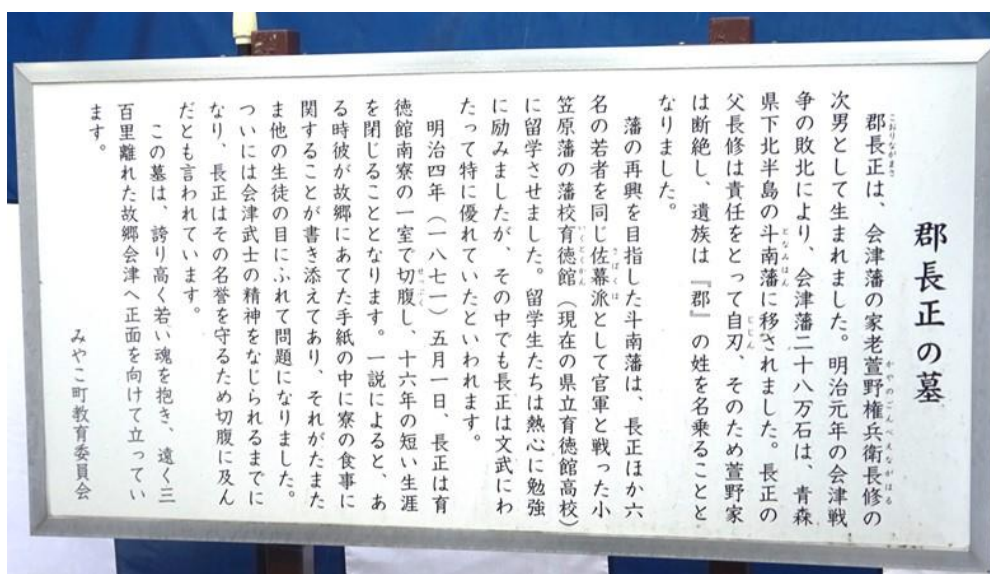 郡長正の墓
郡長正は、会津藩の家老萱野権兵衛長修の
次男として生まれました。明治元年の会津戦
争の敗北により、会津藩二十八万石は、青森
県下北半島の斗南藩に移されました。長正の
父長修は責任をとって自刃、そのため萱野家
は断絶し、遺族は『郡』の姓を名乗ることと
なりました。
藩の再興を目指した斗南藩は、長正ほか六
名の若者を同じ佐幕派として官軍と戦った小
笠原藩の藩校育徳館（現在の県立育徳館高校）
に留学させました。留学生たちは熱心に勉強
に励みましたが、その中でも長正は文武にわ
たって特に優れていたといわれます。
明治四年（一八七一）五月一日、長正は育
徳館南寮の一室で切腹し、十六年の短い生涯
を閉じることとなります。一説によると、あ
る時彼が故郷にあてた手紙の中に寮の食事に
関することが書き添えてあり、それがたまた
ま他の生徒の目にふれて問題になりました。
ついには会津武士の精神をなじられるまでに
なり、長正はその名誉を守るため切腹に及ん
だとも言われています。
この墓は、誇り高く若い魂を抱き、遠く三
百里離れた故郷会津へ正面を向けて立ってい
ます。
みやこ町教育委員会